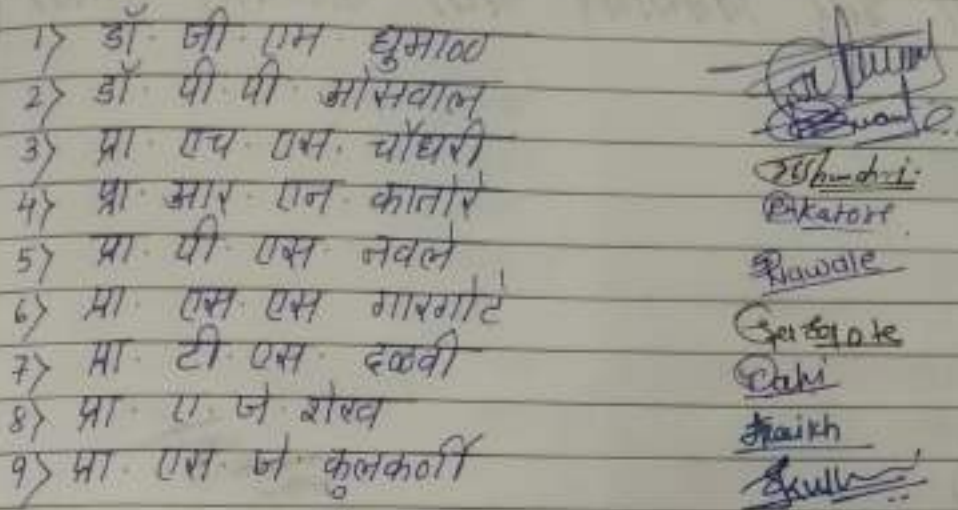 1) डॉ. जी. एम धुमाळ
2) डॉ. पी. पी. ओसवाल
3) प्रा. एच. एस. चौधरी
4) प्रा. आर. एन. कातोरे Rkatore
5) प्रा. पी. एस. नवले Nawale
6) प्रा. एस. एस गारगोटे Gargote
7) प्रा. टी. एस. दळवी Dalvi
8) प्रा. ए. जे. शेख Shaikh
9) प्रा. एस. जे. कुलकर्णी